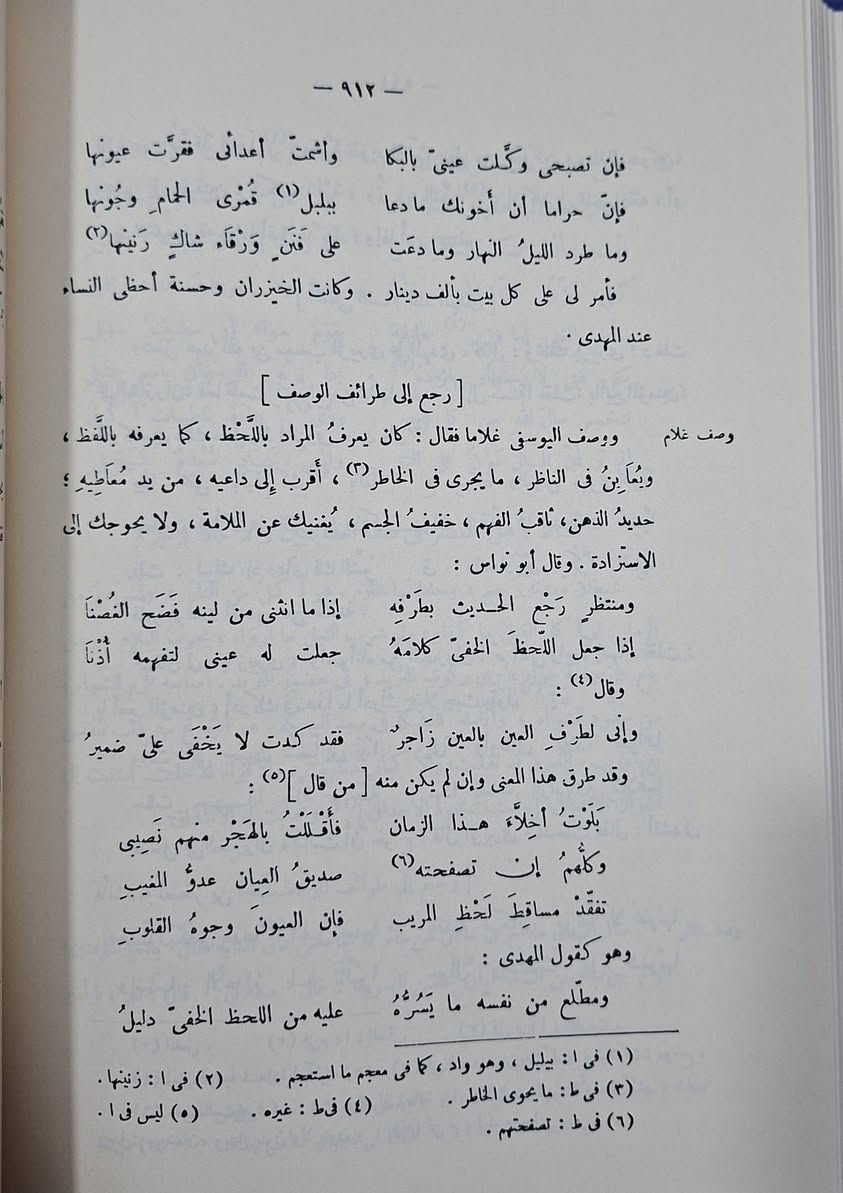 — ٩١٢ —
فإن تصبحى وكَّلت عينىّ بالبكا وأشمتّ أعدائى فقرَّت عيونها
فإنّ حراما أن أخونك ما دعا ببلبل(١) قُمْرى الحمامِ وجُونها
وما طرد الليلُ النهار وما دعَت على فَنَنٍ وَرْقَاء شاكٍ رَنينها(٢)
فأمر لى على كل بيت بألف دينار . وكانت الخيزران وحسنة أحظى النساء
عند المهدى .
[ رجع إلى طرائف الوصف ]
وصف غلام
ووصف اليوسفى غلاما فقال : كان يعرفُ المراد باللَّحْظ ، كما يعرفه باللَّفظ ،
ويُعَايِنُ فى الناظر ، ما يجرى فى الخاطر(٣) ، أَقرب إِلى داعيه ، من يد مُعَاطِيهِ ؛
حديدُ الذهن، ثاقبُ الفهم ، خفيفُ الجسم ، يُغنيك عن الملامة ، ولا يحوجك إلى
الاستزادة . وقال أبو نواس :
ومنتظرٍ رَجْع الحديث بطَرْفِه إذا ما انثنى من لينه فَضَح الغُصْنَا
إذا جعل اللّحظَ الخفىّ كلامَهُ جعلت له عينى لتفهمه أُذْنَا
وقال(٤) :
وإنى لطَرْفِ العين بالعين زَاجرٌ فقد كدت لا يَخْفَى علىّ ضميرُ
وقد طرق هذا المعنى وإن لم يكن منه [ من قال ](٥) :
بَلَوْتُ أخِلاَّءَ هذا الزمان فأَقْلَلْتُ بالهَجْر منهم نَصِيبى
وكلُّهمُ إن تصفحته(٦) صديقُ العِيان عدوُّ المغيبِ
تفقّدْ مساقِطَ لَحْظِ المريب فإن العيونَ وجوهُ القلوبِ
وهو كقول المهدى :
ومطّلع من نفسه ما يَسُرُّهُ عليه من اللحظ الخفىّ دليلُ
(١) فى ا : بيليل ، وهو واد ، كما فى معجم ما استعجم . (٢) فى ا : زنينها .
(٣) فى ط : ما يحوى الخاطر . (٤) فى ط : غيره . (٥) ليس فى ا .
(٦) فى ط : تصفحتهم .